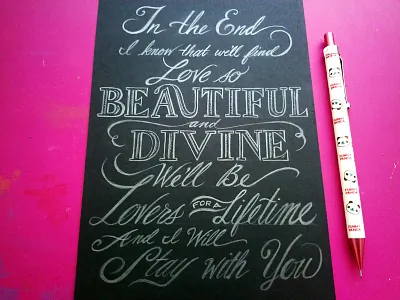 In the End
I know that we'll find
Love so
BEAUTIFUL
and
DIVINE
We'll Be
Lovers FOR A Lifetime
And I Will
Stay with You